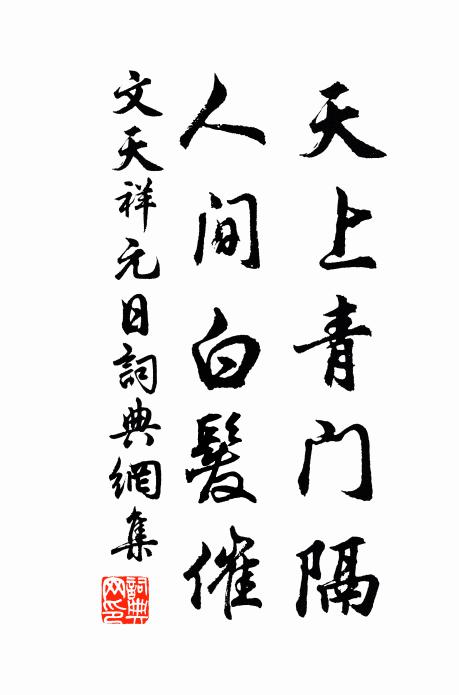 天上青门隔
人间白髮催
文天祥元日詞典網集
詞典網印